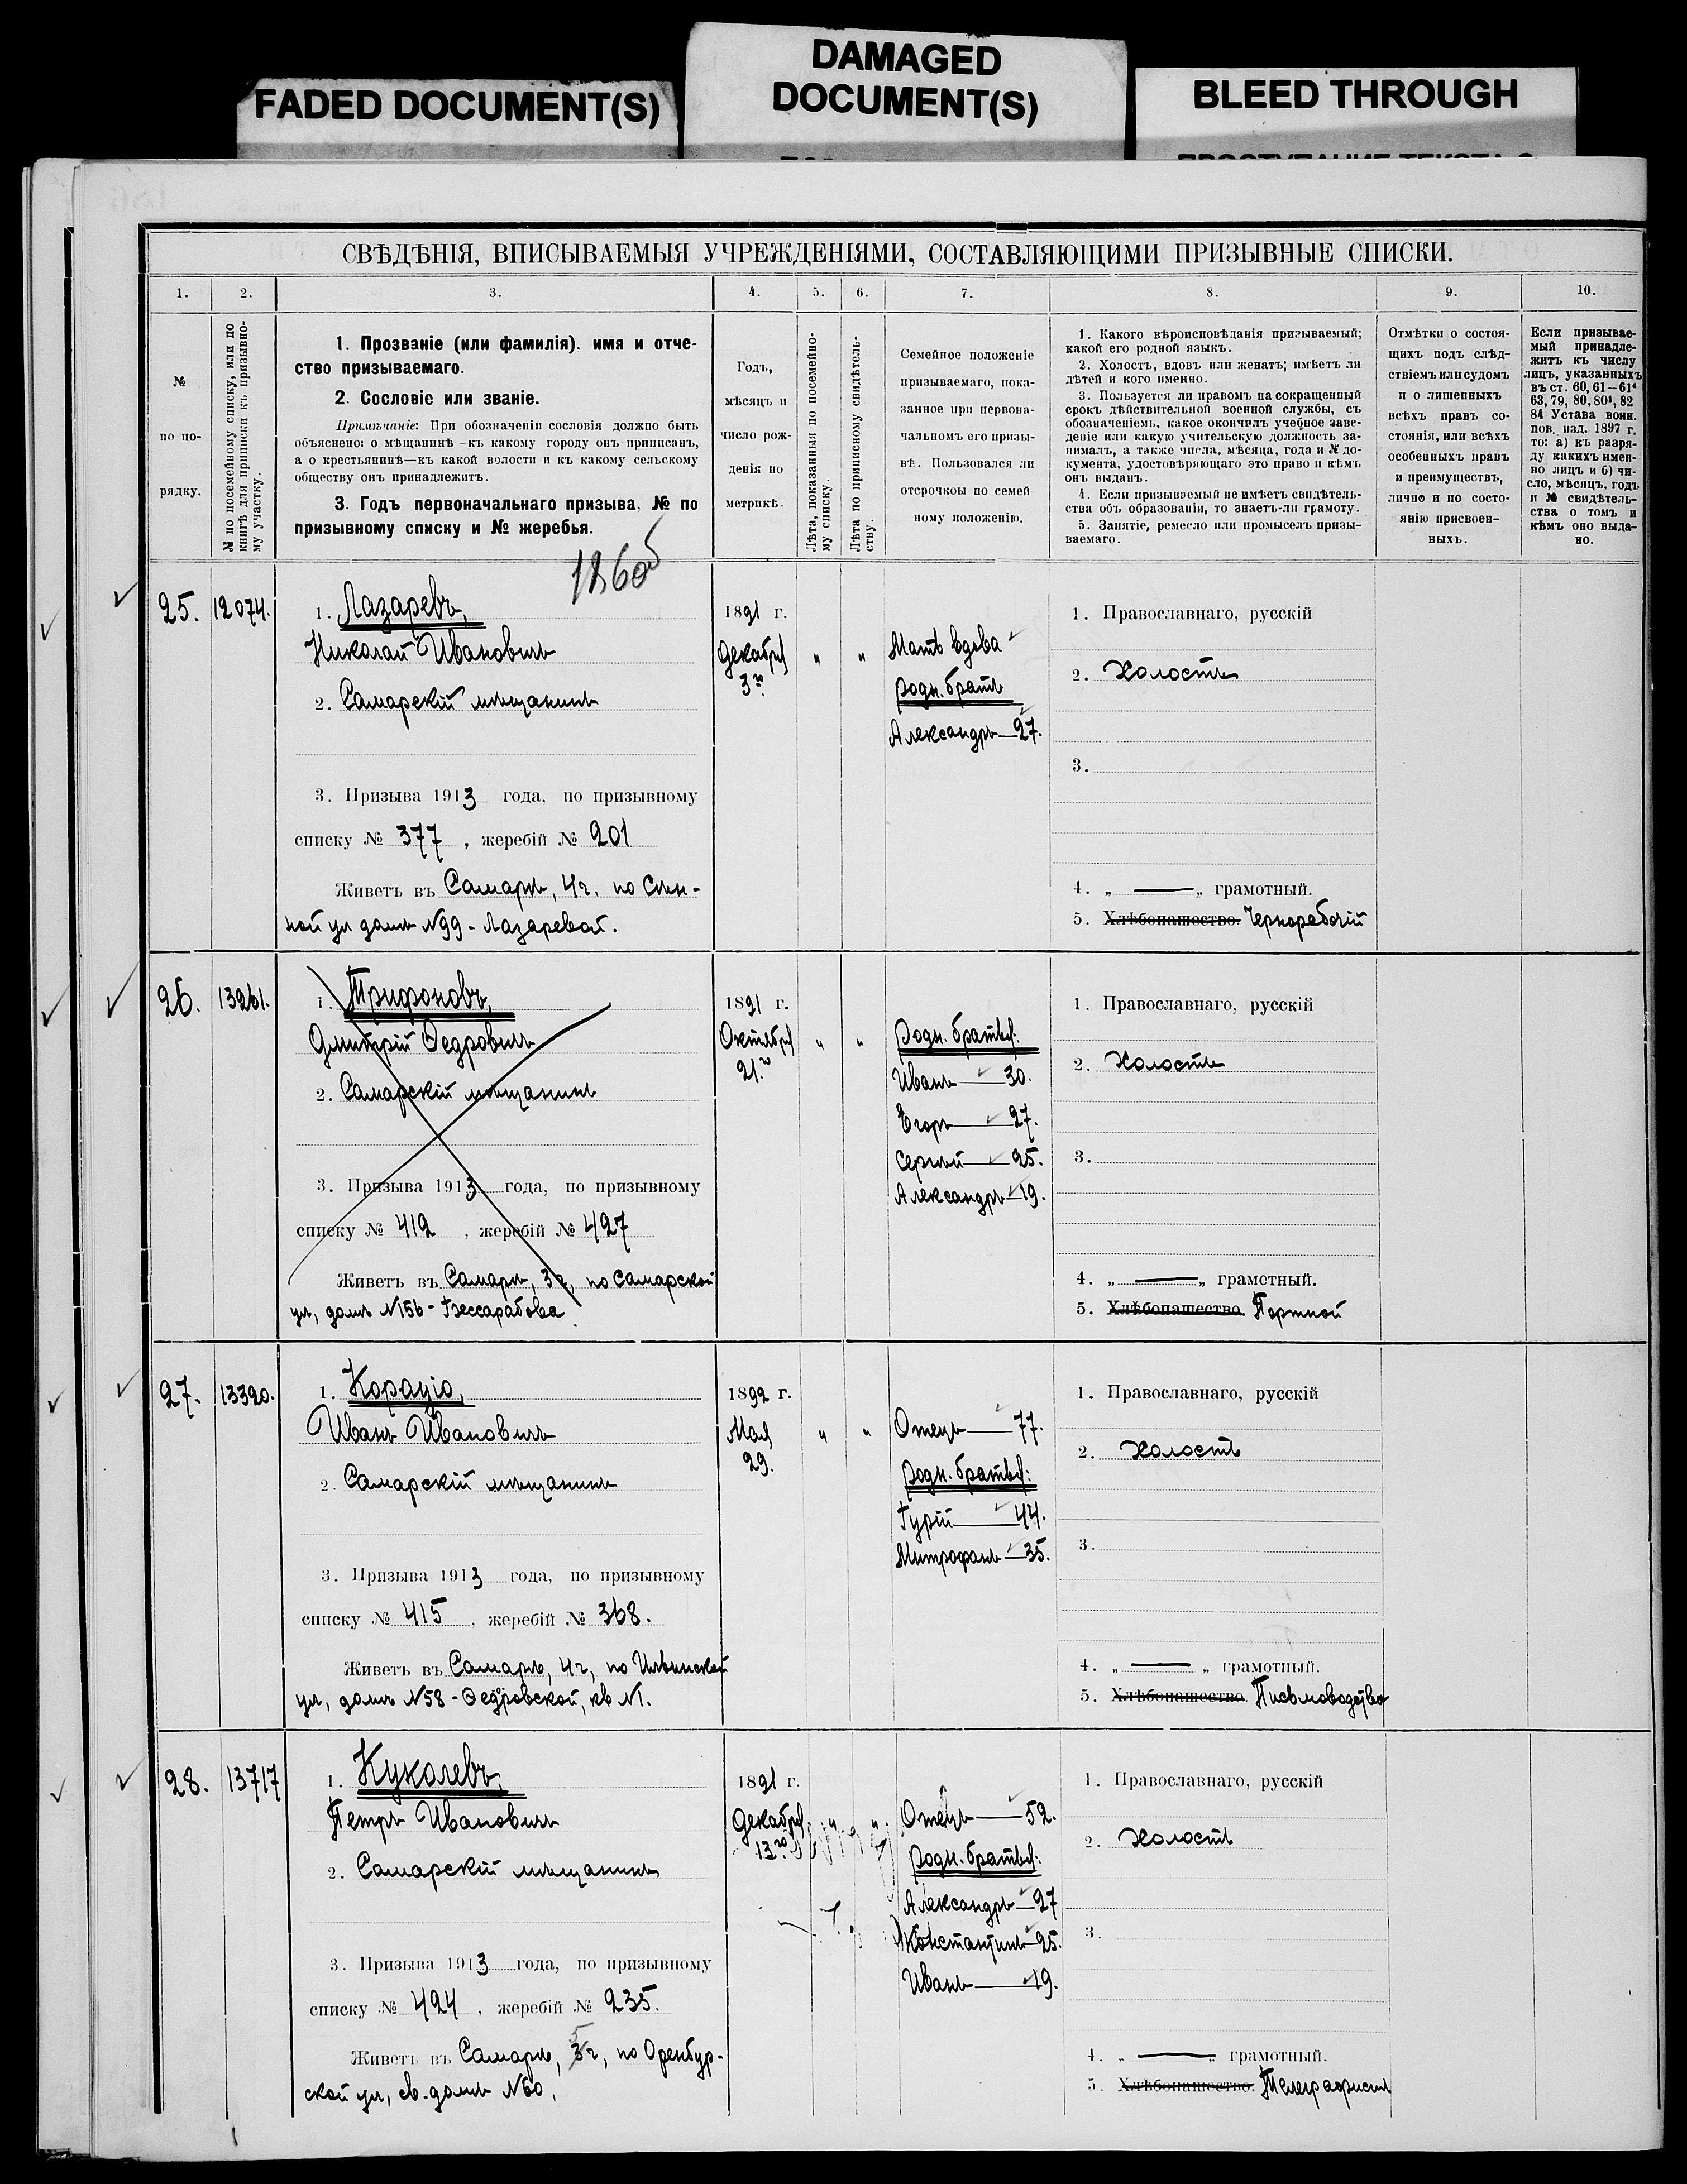 FADED DOCUMENT(S)
DAMAGED
DOCUMENT(S)
BLEED THROUGH
СВѢДѢНІЯ, ВПИСЫВАЕМЫЯ УЧРЕЖДЕНІЯМИ, СОСТАВЛЯЮЩИМИ ПРИЗЫВНЫЕ СПИСКИ.
1.
2.
3.
4.
5.
6.
7.
8.
9.
10.
№
по по-
рядку.
№ по посемейному списку, или по
книгѣ для приписки къ призывно-
му участку.
1. Прозваніе (или фамилія). имя и отче-
ство призываемаго.
2. Сословіе или званіе.
Примѣчаніе: При обозначеніи сословія должно быть
объяснено: о мѣщанинѣ –къ какому городу онъ приписанъ,
а о крестьянинѣ—къ какой волости и къ какому сельскому
обществу онъ принадлежитъ.
3. Годъ первоначальнаго призыва, № по
призывному списку и № жеребья.
Годъ,
мѣсяцъ и
число рож-
денія по
метрикѣ.
Лѣта, показанныя по посемейно-
му списку.
Лѣта по приписному свидѣтель-
ству.
Семейное положеніе
призываемаго, пока-
занное при первона-
чальномъ его призы-
вѣ. Пользовался ли
отсрочкою по семей
ному положенію.
1. Какого вѣроисповѣданія призываемый;
какой его родной языкъ.
2. Холостъ, вдовъ или женатъ; имѣетъ ли
дѣтей и кого именно.
3. Пользуется ли правомъ на сокращенный
срокъ дѣйствительной военной службы, съ
обозначеніемъ, какое окончилъ учебное заве-
деніе или какую учительскую должность за-
нималъ, а также числа, мѣсяца, года и № до-
кумента, удостовѣряющаго это право и кѣмъ
онъ выданъ.
4. Если призываемый не имѣетъ свидѣтель-
ства объ образованіи, то знаетъ-ли грамоту.
5. Занятіе, ремесло или промыселъ призы-
ваемаго.
Отмѣтки о состоя-
щихъ подъ слѣд-
ствіемъ или судомъ
и о лишенныхъ
всѣхъ правъ со-
стоянія, или всѣхъ
особенныхъ правъ
и преимуществъ,
лично и по состо-
янію присвоен-
ныхъ.
Если призывае-
мый принадле-
житъ къ числу
лицъ, указанныхъ
въ ст. 60, 61–61⁴
63, 79, 80, 80¹, 82
84 Устава воин.
пов. изд. 1897 г.
то: а) къ разря-
ду какихъ имен-
но лицъ и б) чи-
сло, мѣсяцъ, годъ
и № свидѣтель-
ства о томъ и
кѣмъ оно выда-
но.
25.
12074.
1. Лазаревъ,
Николай Ивановичъ
2. Самарскій мѣщанинъ
3. Призыва 1913 года, по призывному
списку № 377, жеребій № 201
Живетъ въ Самарѣ, 4ч, по Сѣн-
ной ул домъ №99 - Лазаревой.
1891 г.
Декабря
3го.
„
„
Мать вдова
Родн. братъ
Александръ—27.
1. Православнаго, русскій
2. Холостъ
3.
4. „ — „ грамотный.
5. Хлѣбопашество. Чернорабочій
26.
13261.
1. Трифоновъ,
Дмитрій Федровичъ
2. Самарскій мѣщанинъ
3. Призыва 1913 года, по призывному
списку № 412, жеребій № 427
Живетъ въ Самарѣ, 3ч, по Самарской
ул, домъ №156 - Бессарабова
1891 г.
Октября
21.го
„
„
Родн. братья:
Иванъ — 30.
Егоръ — 27.
Сергѣй — 25.
Александръ—19.
1. Православнаго, русскій
2. Холостъ
3.
4. „ — „ грамотный.
5. Хлѣбопашество. Портной
27.
13320.
1. Корадіо,
Иванъ Ивановичъ
2. Самарскій мѣщанинъ
3. Призыва 1913 года, по призывному
списку № 415, жеребій № 368.
Живетъ въ Самарѣ, 4ч, по Ильинской
ул, домъ №58 - Федоровской, кв №1.
1892 г.
Мая
29.
„
„
Отецъ — 77.
Родн. братья:
Гурій — 44.
Митрофанъ—35.
1. Православнаго, русскій
2. Холостъ
3.
4. „ — „ грамотный.
5. Хлѣбопашество. Письмоводство
28.
13717
1. Куколевъ,
Петръ Ивановичъ
2. Самарскій мѣщанинъ
3. Призыва 1913 года, по призывному
списку № 424, жеребій № 235.
Живетъ въ Самарѣ, 5ч, по Оренбур-
ской ул, св. домъ №60,
1891 г.
Декабря
13го
„
„
Отецъ — 52.
Родн. братья:
Александръ—27
Константинъ—25.
Иванъ — 19.
1. Православнаго, русскій
2. Холостъ
3.
4. „ — „ грамотный.
5. Хлѣбопашество. Телеграфистъ